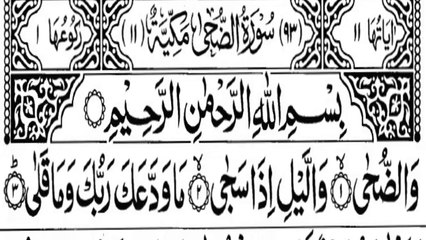 اٰیَاتُهَا ١١ (٩٣) سُوْرَةُ الضُّحٰى مَكِّيَّةٌ (١١) رُكُوْعُهَا ١
بِسْمِ اللّٰهِ الرَّحْمٰنِ الرَّحِيْمِ
وَالضُّحٰى ١ وَالَّيْلِ اِذَا سَجٰى ٢ مَا وَدَّعَكَ رَبُّكَ وَمَا قَلٰى ٣